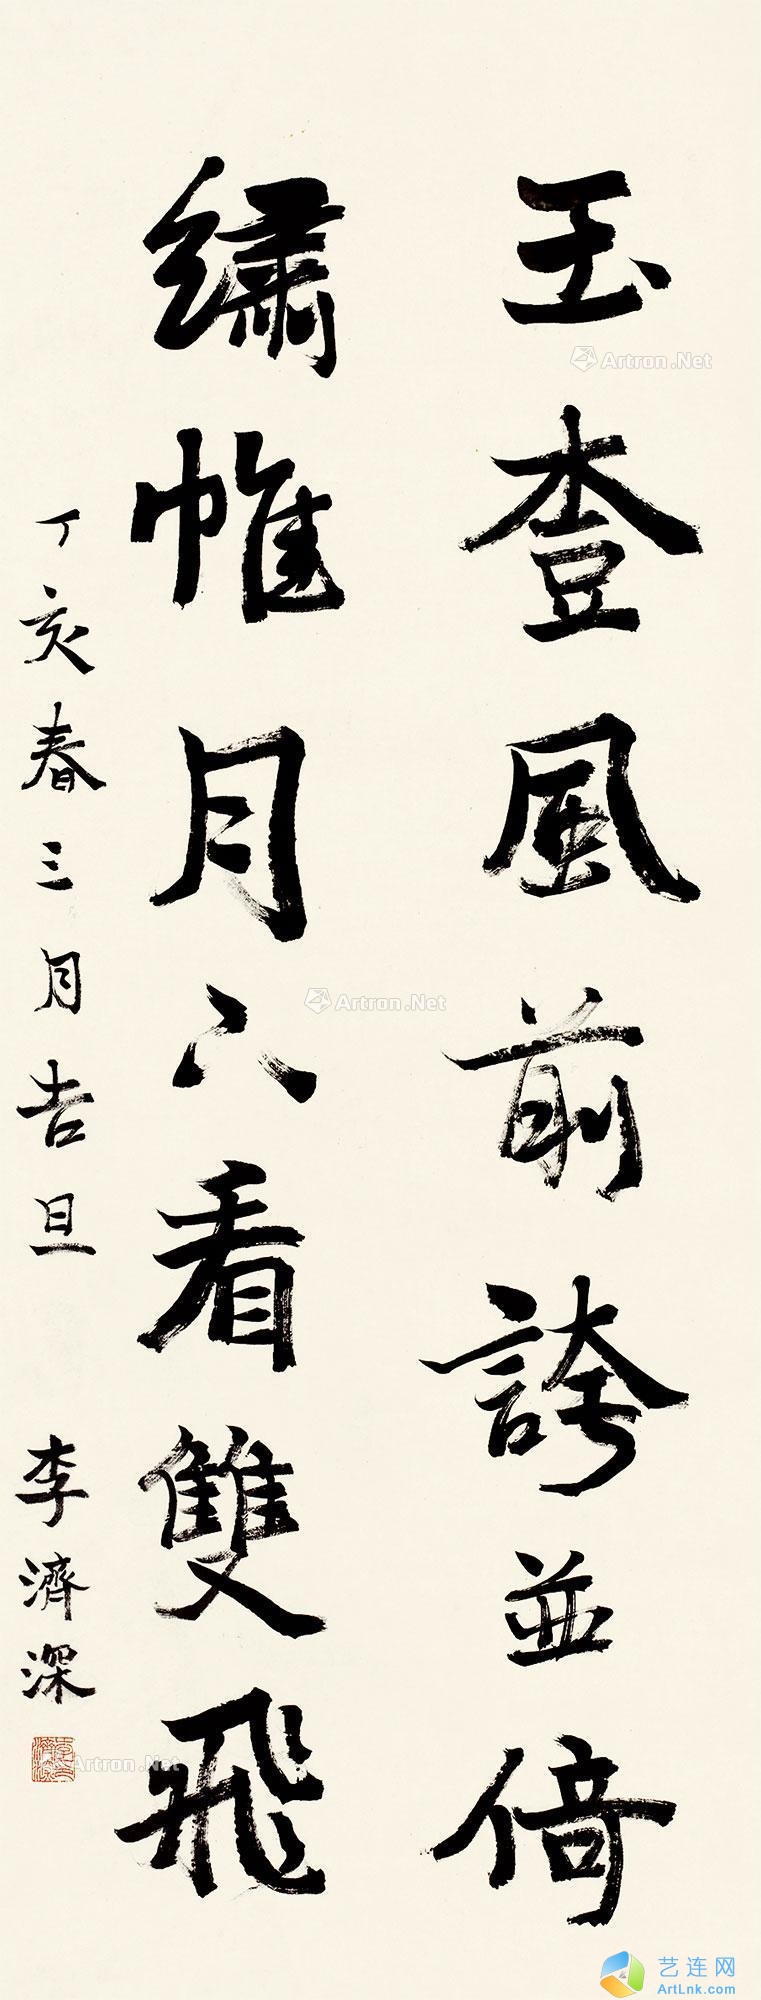 玉風前誇並倚
繡帷月下看雙飛
丁亥春三月吉旦 李濟深
Artron.Net
Artron.Net
Artron.Net
艺连网
ArtLnk.com